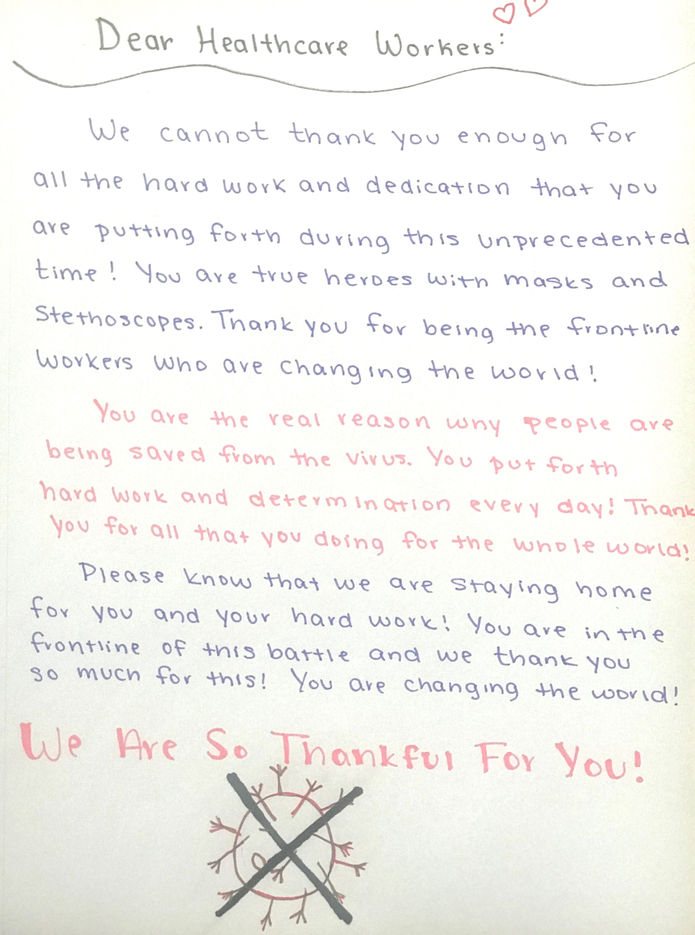 Dear Healthcare Workers:
We cannot thank you enough for
all the hard work and dedication that you
are putting forth during this unprecedented
time! You are true heroes with masks and
Stethoscopes. Thank you for being the frontline
workers who are changing the world!
You are the real reason why people are
being saved from the virus. You put forth
hard work and determination every day! Thank
you for all that you doing for the whole world!
Please know that we are staying home
for you and your hard work! You are in the
frontline of this battle and we thank you
so much for this! You are changing the world!
We Are So Thankful For You!